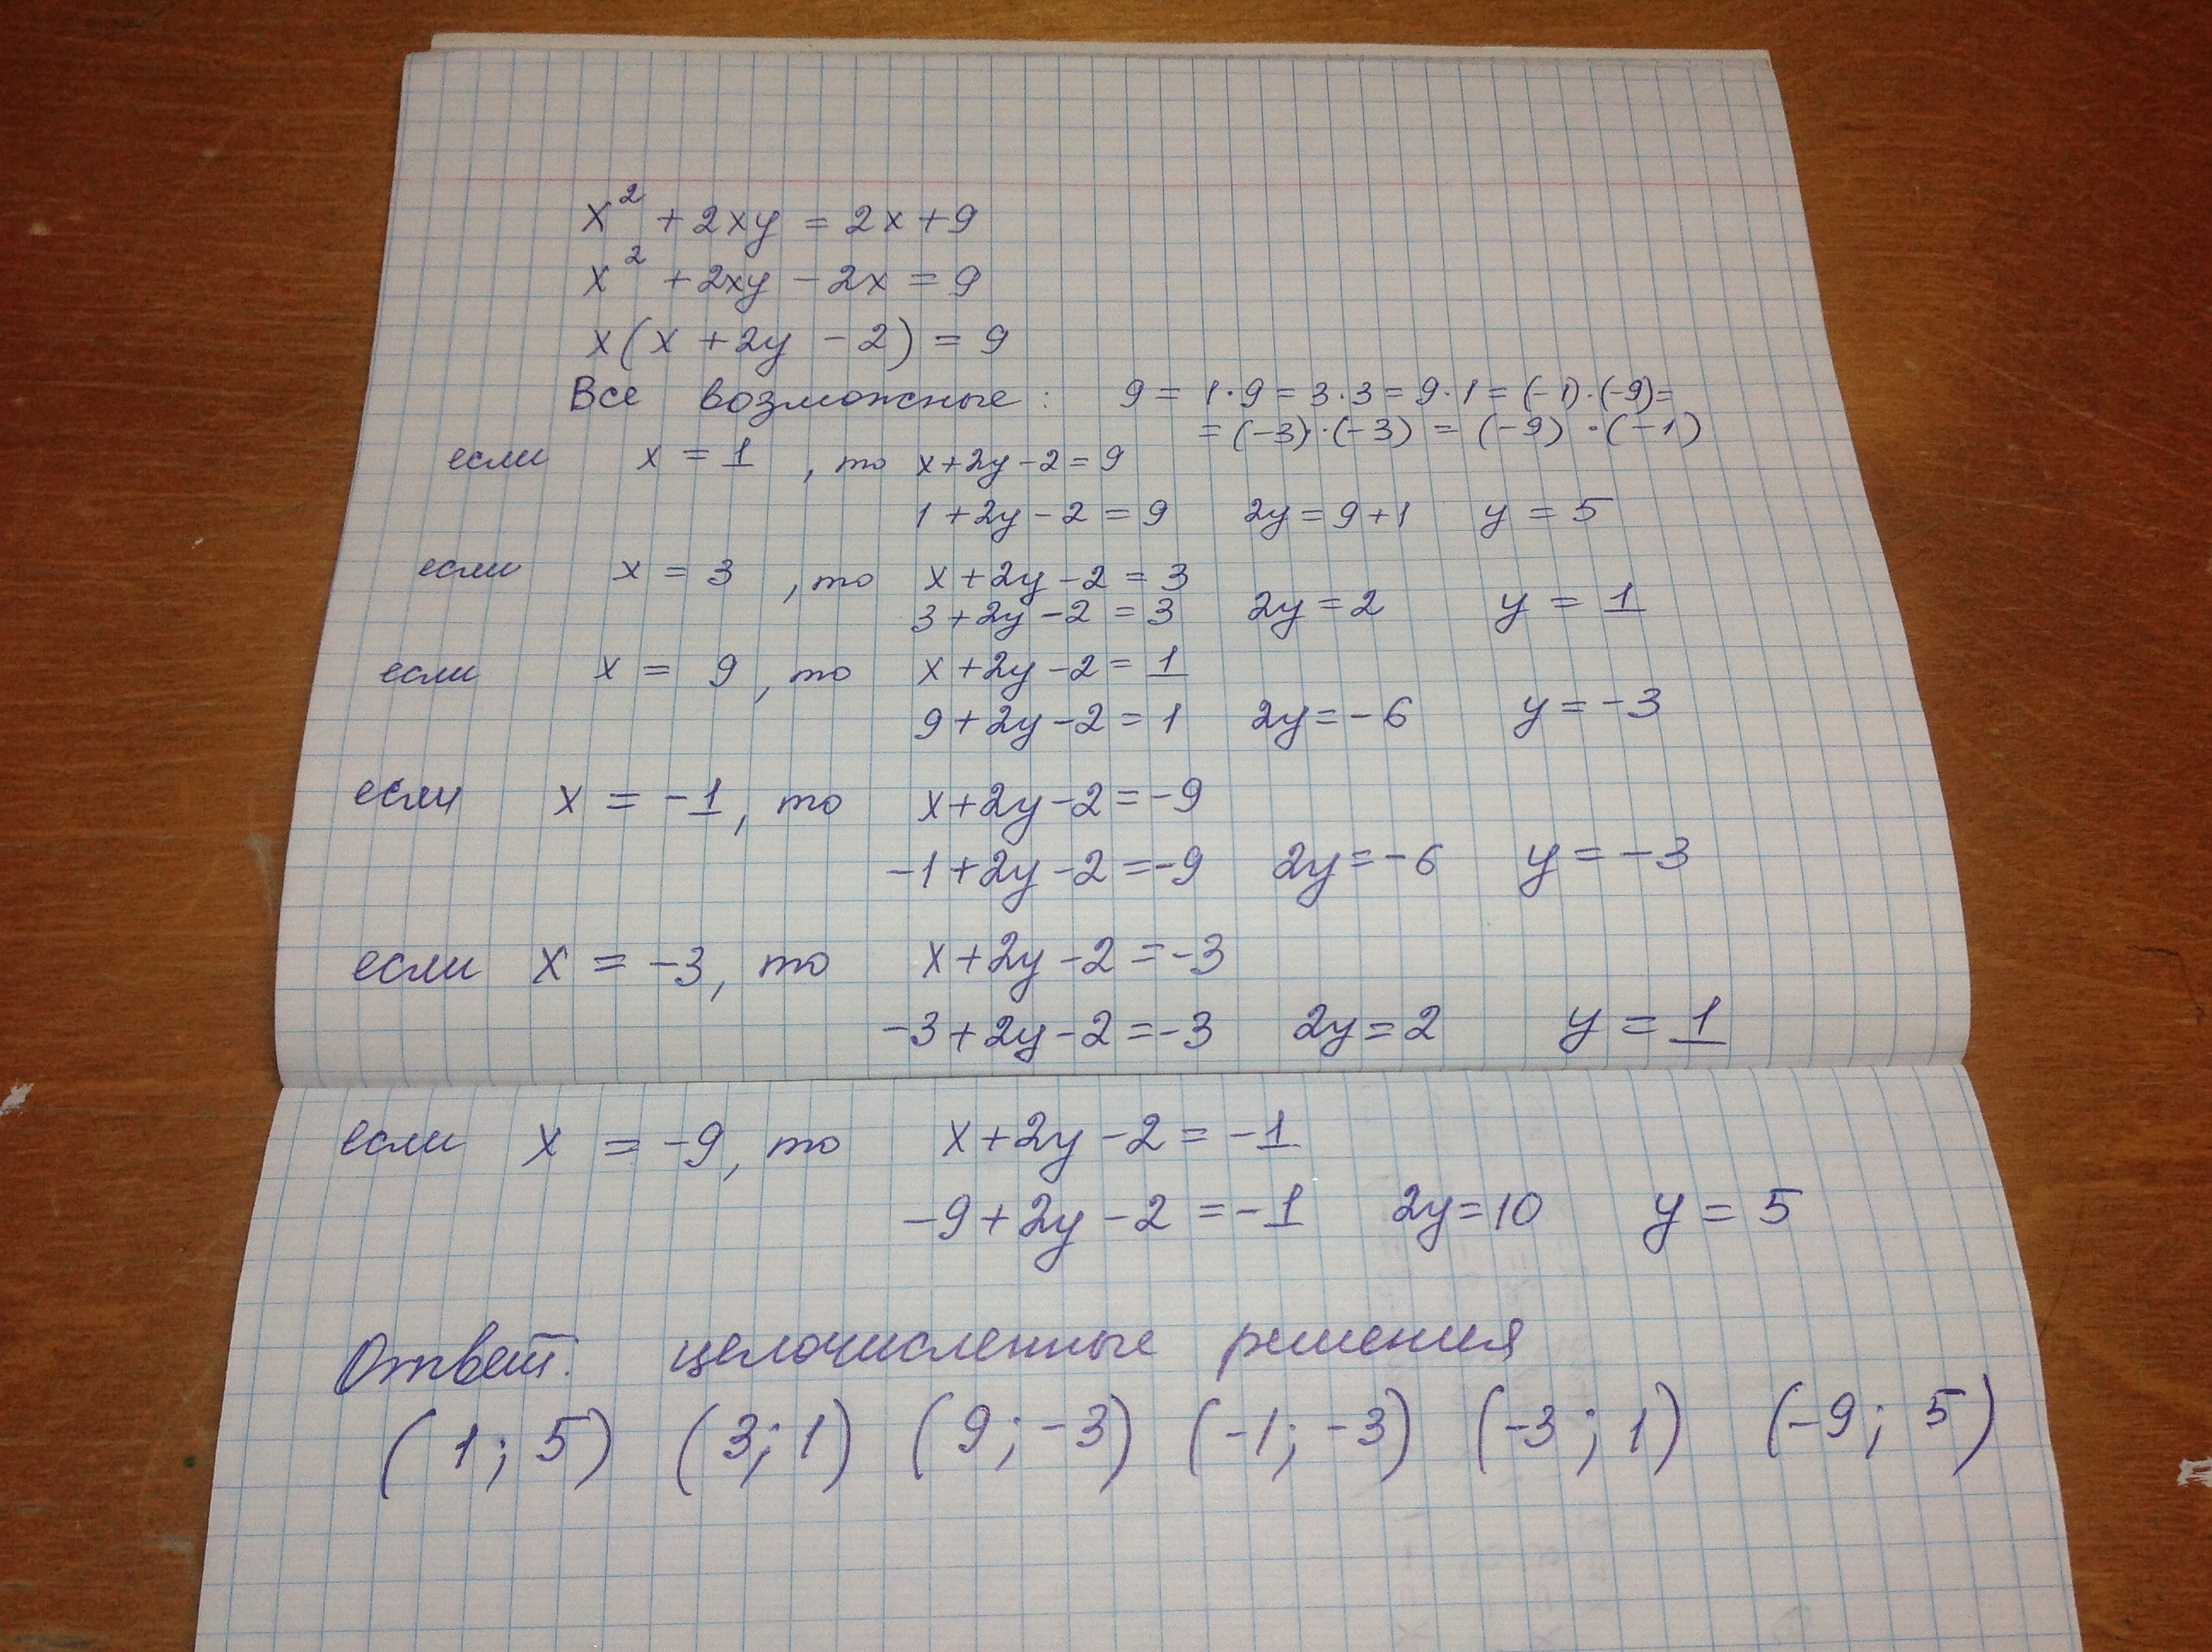 x² + 2xy = 2x + 9
x² + 2xy - 2x = 9
x(x + 2y - 2) = 9
Все возможные: 9 = 1·9 = 3·3 = 9·1 = (-1)·(-9) =
= (-3)·(-3) = (-9)·(-1)
если x = 1, то x + 2y - 2 = 9
1 + 2y - 2 = 9 2y = 9 + 1 y = 5
если x = 3, то x + 2y - 2 = 3
3 + 2y - 2 = 3 2y = 2 y = 1
если x = 9, то x + 2y - 2 = 1
9 + 2y - 2 = 1 2y = -6 y = -3
если x = -1, то x + 2y - 2 = -9
-1 + 2y - 2 = -9 2y = -6 y = -3
если x = -3, то x + 2y - 2 = -3
-3 + 2y - 2 = -3 2y = 2 y = 1
если x = -9, то x + 2y - 2 = -1
-9 + 2y - 2 = -1 2y = 10 y = 5
Ответ: целочисленные решения
(1; 5) (3; 1) (9; -3) (-1; -3) (-3; 1) (-9; 5)